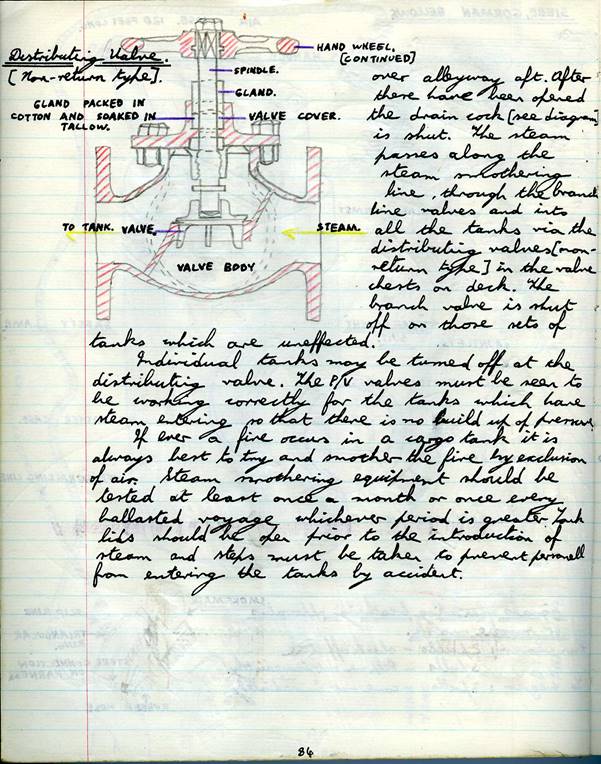 Distributing Valve.
[Non-return type].
HAND WHEEL.
[CONTINUED]
SPINDLE.
GLAND.
GLAND PACKED IN
COTTON AND SOAKED IN
TALLOW.
VALVE COVER.
TO TANK.
VALVE
STEAM.
VALVE BODY
over alleyway aft. After
there have been opened
the drain cock [see diagram]
is shut. The steam
passes along the
steam smothering
line, through the branch
line valves and into
all the tanks via the
distributing valves [non-
return type] in the valve
chests on deck. The
branch valve is shut
off on those sets of
tanks which are uneffected.
Individual tanks may be turned off at the
distributing valve. The P/V valves must be seen to
be working correctly for the tanks which have
steam entering so that there is no build up of pressure.
If ever a fire occurs in a cargo tank it is
always best to try and smother the fire by exclusion
of air. Steam smothering equipment should be
tested at least once a month or once every
ballasted voyage whichever period is greater. Tank
lids should be open prior to the introduction of
steam and steps must be taken to prevent personell
from entering the tanks by accident.
86